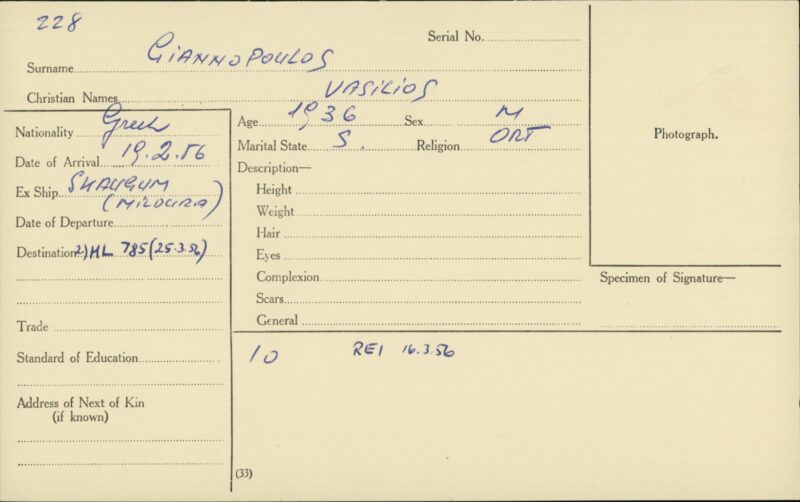 228
Serial No.
Surname GIANNOPOULOS
Christian Names VASILIOS
Nationality Greek
Age 1936 Sex M
Date of Arrival 19.2.56
Marital State S. Religion ORT
Photograph.
Description—
Ex Ship SKAUGUM
(MILDURA)
Height
Weight
Date of Departure
Hair
Destination 2) HL 785 (25.3.56)
Eyes
Complexion
Specimen of Signature—
Scars
Trade
General
Standard of Education
10 REI 16.3.56
Address of Next of Kin
(if known)
(33)